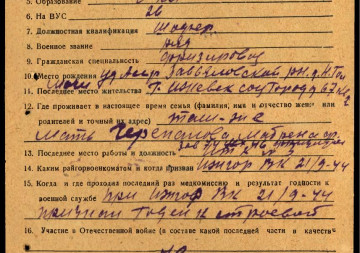 5. Образование
6. На ВУС 26
7. Должностная квалификация Шофер
8. Военное звание ряд
9. Гражданская специальность
10. Место рождения Уд Асср Завьяловский
11. Последнее место жительства г. Ижевск соцгород
12. Где проживает в настоящее время семья (фамилия, имя и отчество жены или
родителей и точный их адрес) там-же
Мать Черепанова Матрена
13. Последнее место работы и должность
14. Каким райгорвоенкоматом и когда призван Ижгор ВК 21/9-44
15. Когда и где проходил последний раз медкомиссию и результат годности к
военной службе при Ижгор ВК 21/9-44
признан годен к строевой
16. Участие в Отечественной войне (в составе какой последней части и качест-